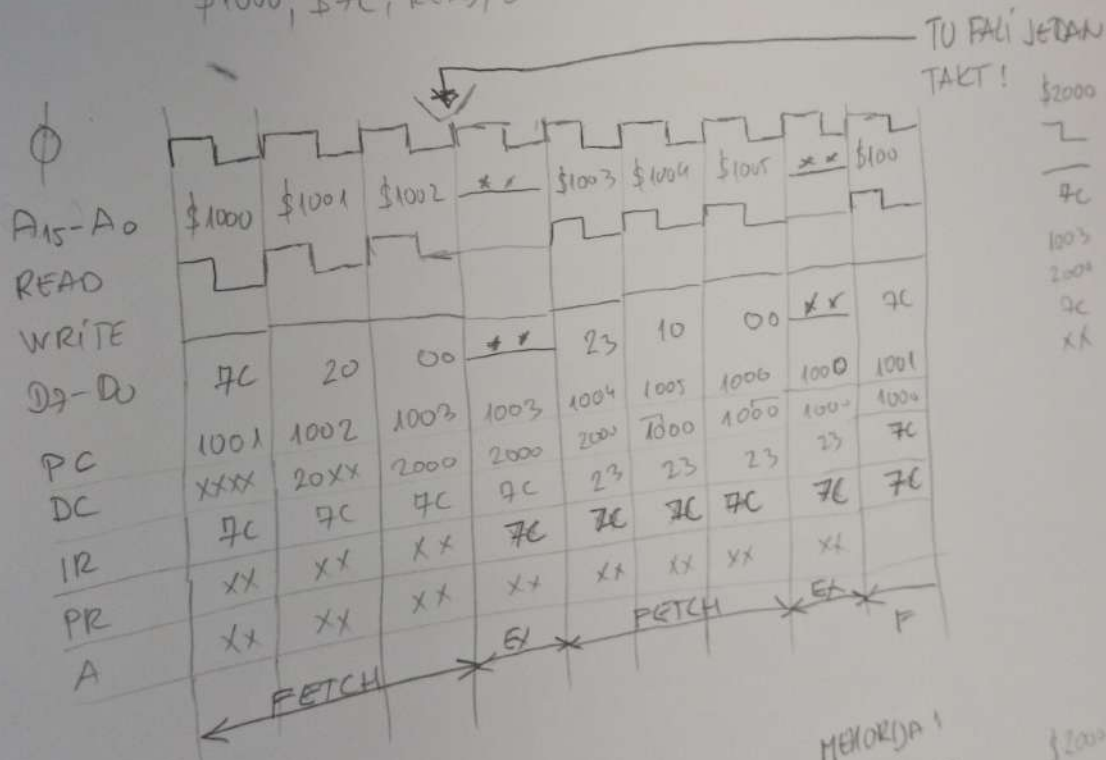 $1000, $7C,
TU FALI JEDAN
TAKT!
$2000
7C
1003
2000
7C
XX
Φ
A15-A0 $1000 $1001 $1002 ** $1003 $1004 $1005 ** $100
READ
WRITE
D7-D0 7C 20 00 ** 23 10 00 ** 7C
PC 1001 1002 1003 1003 1004 1005 1006 1000 1001
DC XXXX 20XX 2000 2000 2000 1000 1000 1000 1000
IR 7C 7C 7C 7C 23 23 23 23 7C
PR XX XX XX 7C 7C 7C 7C 7C 7C
A XX XX XX XX XX XX XX XX
FETCH EX FETCH EX F
MEMORIJA!
$2000